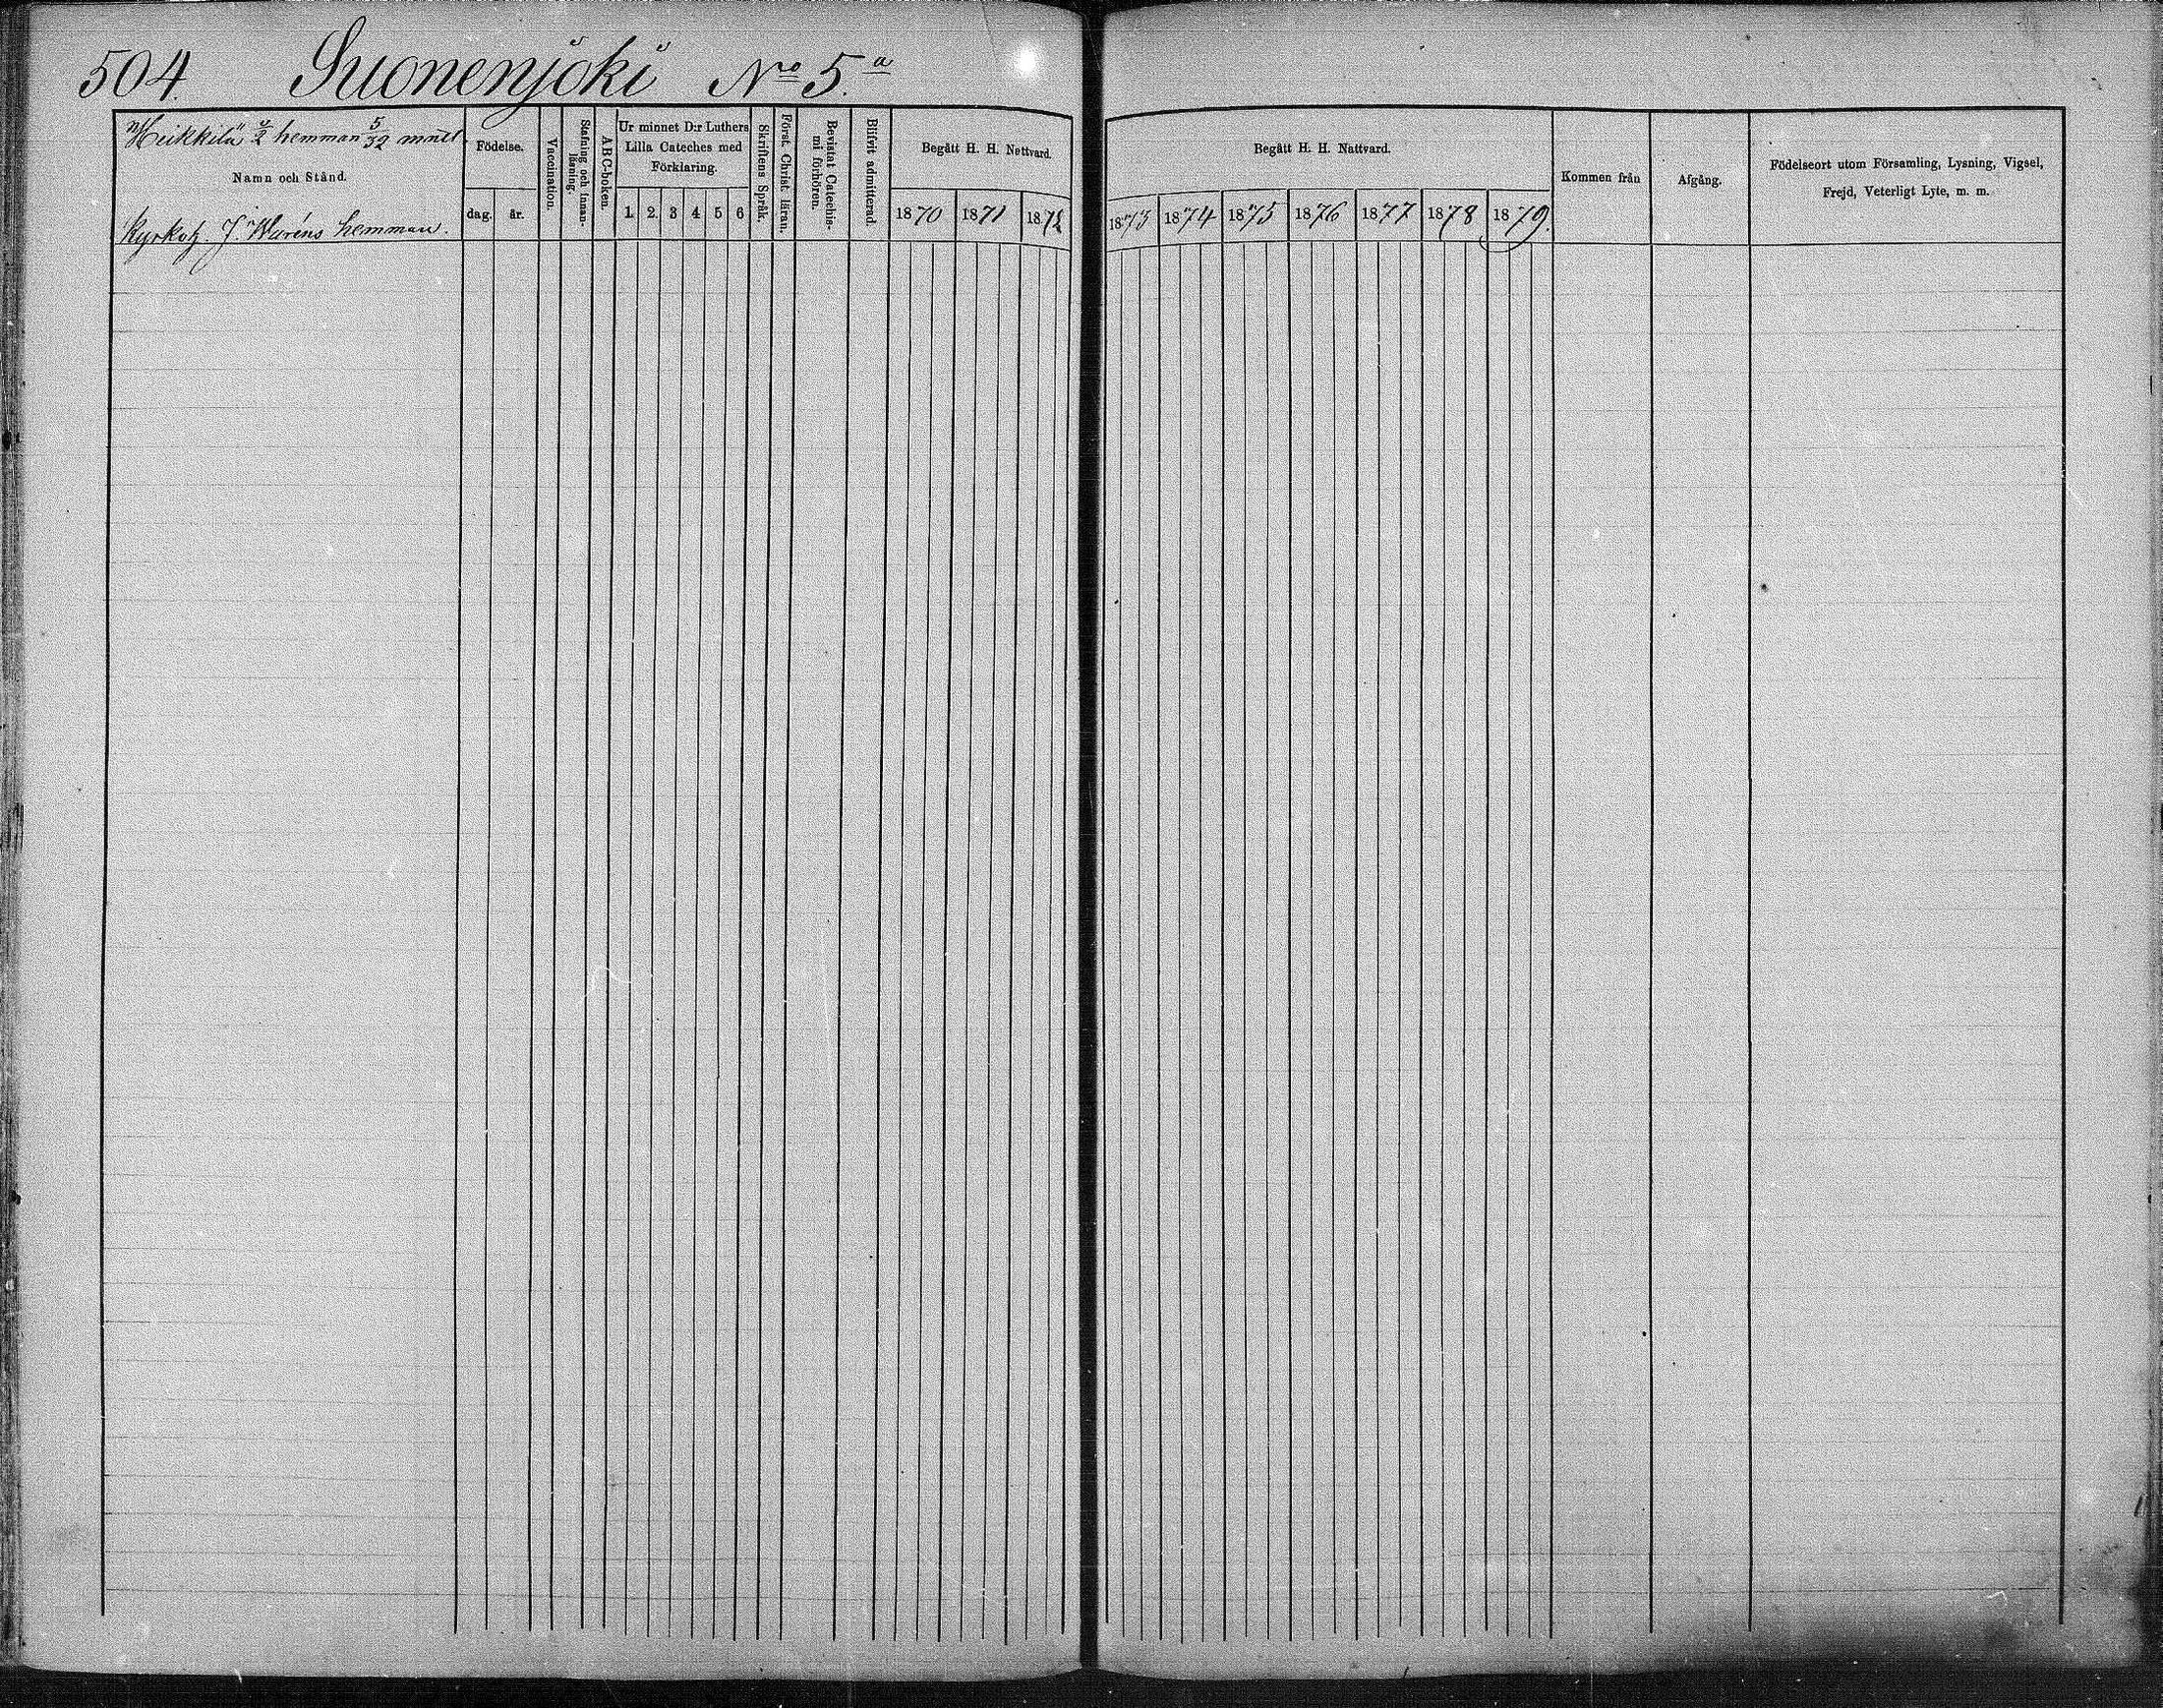 504. Suonenjoki No 5.a
"Heikkilä" hemman 5/32 mntl
Namn och Stånd.
Kyrkoh. J. Waréns hemman.
Födelse.
dag. år.
Vaccination.
Stafning och innan-
läsning.
ABC-boken.
Ur minnet D:r Luthers
Lilla Cateches med
Förklaring.
1. 2. 3 4 5 6
Skriftens Språk.
Först. Christ. läran.
Bevistat Catechis-
mi förhören.
Blifvit admitterad
Begått H. H. Nattvard.
1870 1871 1872
Begått H. H. Nattvard.
1873 1874 1875 1876 1877 1878 1879.
Kommen från
Afgång.
Födelseort utom Församling, Lysning, Vigsel,
Frejd, Veterligt Lyte, m. m.